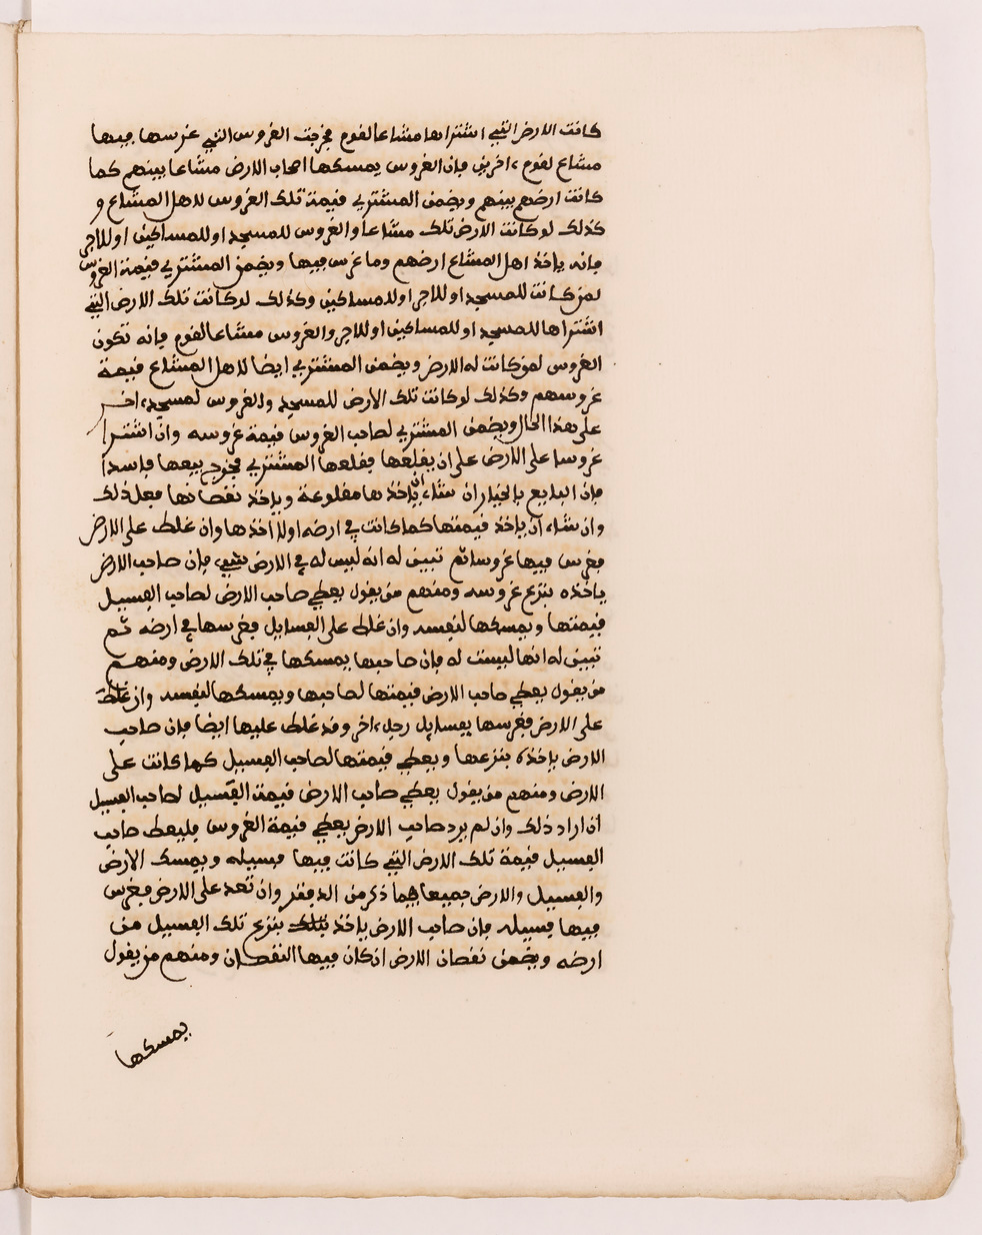 كانت الارض التي اشتراها مشاعا لقوم فخرجت الغروس التي غرسها فيها
مشاع لقوم ءاخرين فإن الغروس يمسكها اصحاب الارض مشاعا بينهم كما
كانت ارضهم بينهم ويضمن المشتري قيمة تلك الغروس لاهل المشاع و
كذلك لو كانت الارض تلك مشاعا والغروس للمسجد او للمساكين او للاجر
فإنه ياخذ اهل المشاع ارضهم وما غرس فيها ويضمن المشتري قيمة الغروس
لمن كانت للمسجد او للاجر او لمساكين وكذلك لو كانت تلك الارض التي
اشتراها للمسجد او للمساكين او للاجر والغروس مشاعا لقوم فإنه تكون
الغروس لمن كانت له الارض ويضمن المشتري ايضا لاهل المشاع قيمة
غروسهم وكذلك لو كانت تلك الارض للمسجد والغروس لمسجد ءاخر
على هذا الحال ويضمن المشتري لصاحب الغروس قيمة غروسه وان اشترا
غروسا على الارض على ان يقلعها فقلعها المشتري فخرج بيعها فاسدا
فإن البايع بالخيار ان شاء ان ياخذها مقلوعة وياخذ نقصانها فعل ذلك
وان شاء ان ياخذ قيمتها كما كانت في ارضه اولا اخذها وان غلط على الارض
فغرس فيها غروسا ثم تبين له انه ليس له في الارض شيء فإن صاحب الارض
ياخذه بنزع غروسه ومنهم من يقول يعطي صاحب الارض لصاحب الفسيل
قيمتها ويمسكها لنفسه وان غلط على الفسايل فغرسها في ارضه ثم
تبين له انها ليست له فإن صاحبها يمسكها في تلك الارض ومنهم
من يقول يعطي صاحب الارض قيمتها لصاحبها ويمسكها لنفسه وان غلط
على الارض فغرسها بفسايل رجل ءاخر وقد غلط عليها ايضا فإن صاحب
الارض ياخذه بنزعها ويعطي قيمتها لصاحب الفسيل كما كانت على
الارض ومنهم من يقول يعطي صاحب الارض قيمة الفسيل لصاحب الفسيل
ان اراد ذلك وان لم يرد صاحب الارض يعطي قيمة الغروس فليعط صاحب
الفسيل قيمة تلك الارض التي كانت فيها فسيله ويمسك الارض
والفسيل والارض جميعا فيما ذكر من الدفتر وان تعد على الارض فغرس
فيها فسيله فإن صاحب الارض ياخذ بنزع تلك الفسيل من
ارضه ويضمن نقصان الارض ان كان فيها النقصان ومنهم من يقول
يمسكها